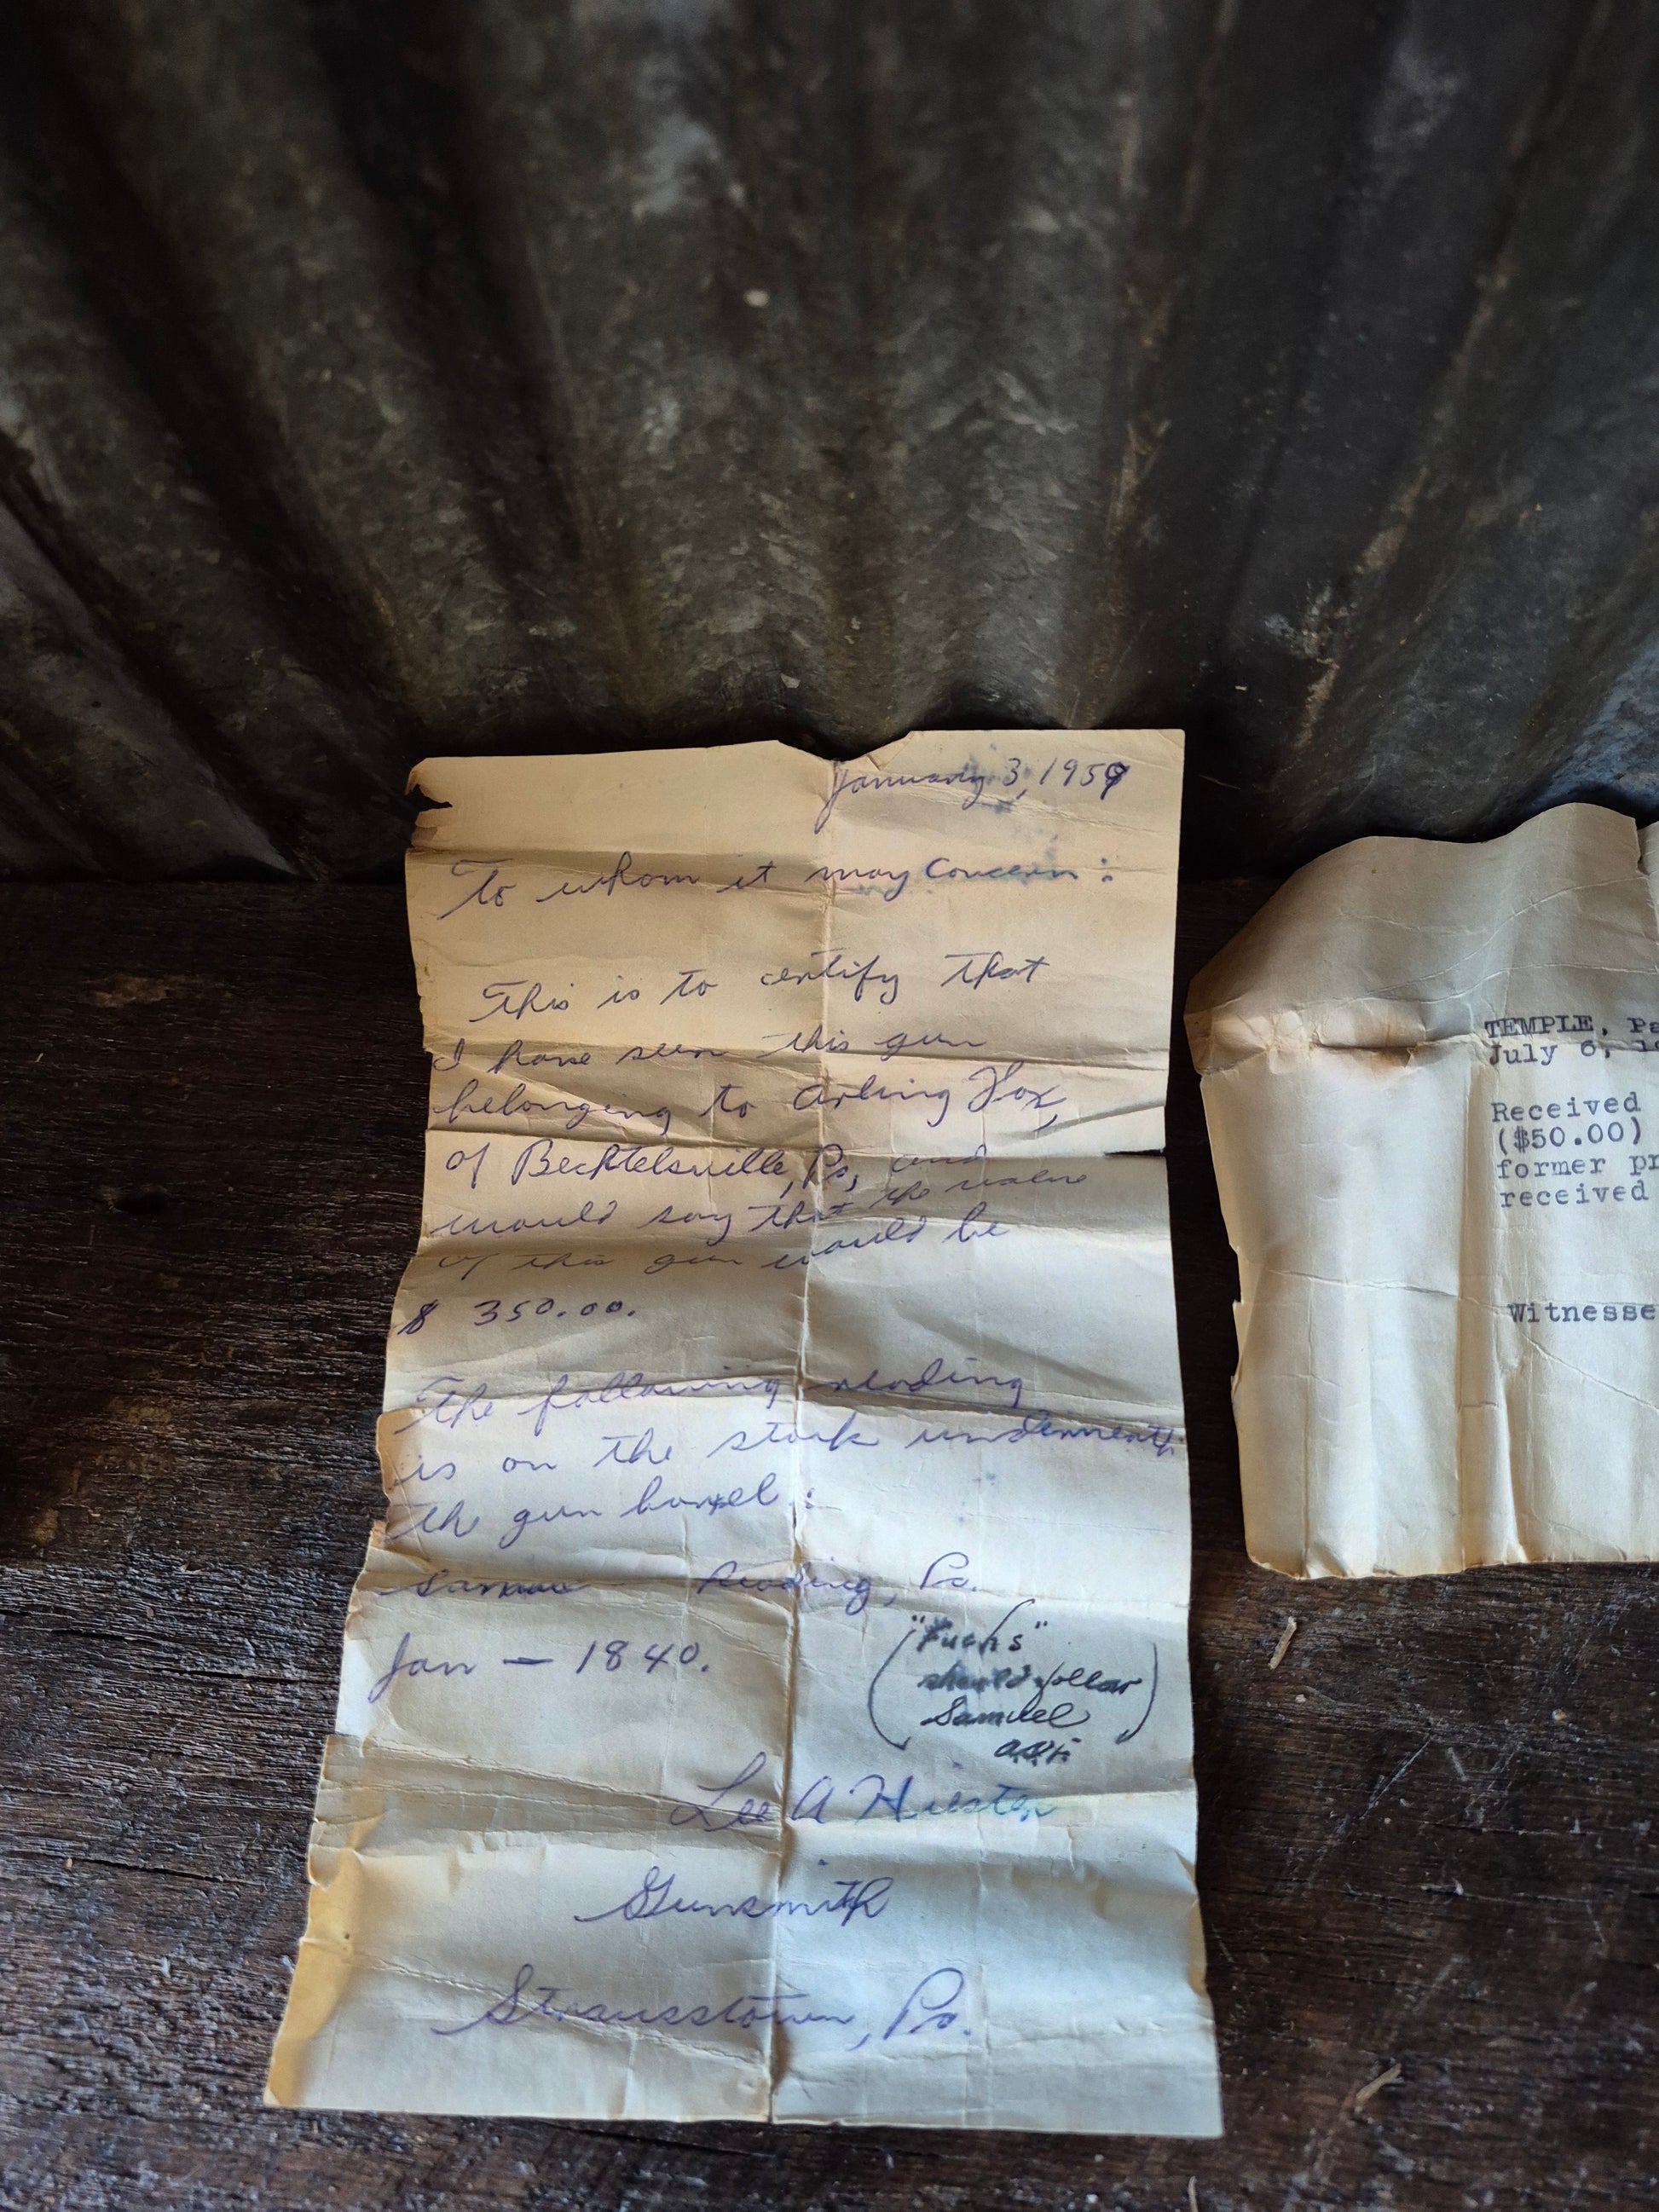 January 3, 1959
To whom it may Concern:
This is to certify that
I have seen this gun
belonging to Arling Fox,
of Bechtelsville, Pa, and
would say that the value
of this gun would be
$ 350.00.
The following reading
is on the stock underneath
the gun barrel:
Reading, Pa.
Jan — 1840.
("Fuchs"
should follow
Samuel
)
Lee A Hiester
Gunsmith
Strausstown, Pa.
TEMPLE, Pa
July 6, 19
Received
($50.00)
former pr
received
Witnesse